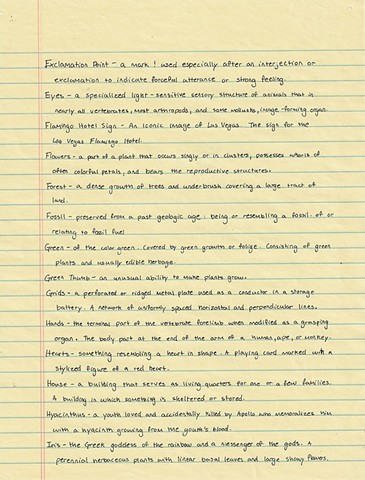 Exclamation Point - a mark ! used especially after an interjection or
exclamation to indicate forceful utterance or strong feeling.
Eyes - a specialized light-sensitive sensory structure of animals that in
nearly all vertebrates, most arthropods, and some mollusks, image-forming organ.
Flamingo Hotel Sign - An iconic image of Las Vegas. The sign for the
Las Vegas Flamingo Hotel.
Flowers - a part of a plant that occurs singly or in clusters, possesses whorls of
often colorful petals, and bears the reproductive structures.
Forest - a dense growth of trees and underbrush covering a large tract of
land.
Fossil - preserved from a past geologic age. being or resembling a fossil. of or
relating to fossil fuel
Green - of the color green. Covered by green growth or folige. Consisting of green
plants and usually edible herbage.
Green Thumb - an unusual ability to make plants grow.
Grids - a perforated or ridged metal plate used as a conductor in a storage
battery. A network of uniformly spaced horizontal and perpendicular lines.
Hands - the terminal part of the vertebrate forelimb when modified as a grasping
organ. The body part at the end of the arm of a human, ape, or monkey.
Hearts - something resembling a heart in shape. A playing card marked with a
stylized figure of a red heart.
House - a building that serves as living quarters for one or a few families.
A building in which something is sheltered or stored.
Hyacinthus - a youth loved and accidentally killed by Apollo who memorializes him
with a hyacinth growing from the youth's blood.
Iris - the Greek goddess of the rainbow and a messenger of the gods. A
perennial herbaceous plants with linear basal leaves and large showy flowers.